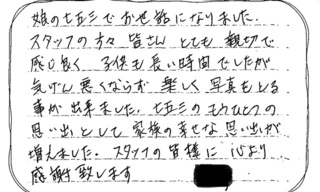 娘の七五三でお世話になりました.
スタッフの方々 皆さん とても 親切で
感じ良く 子供も長い時間でしたが
気げん悪くならず 楽しく 写真もとる
事が出来ました. 七五三のもうひとつの
思い出として 家族の幸せな思い出が
増えました. スタッフの皆様に 心より
感謝致します